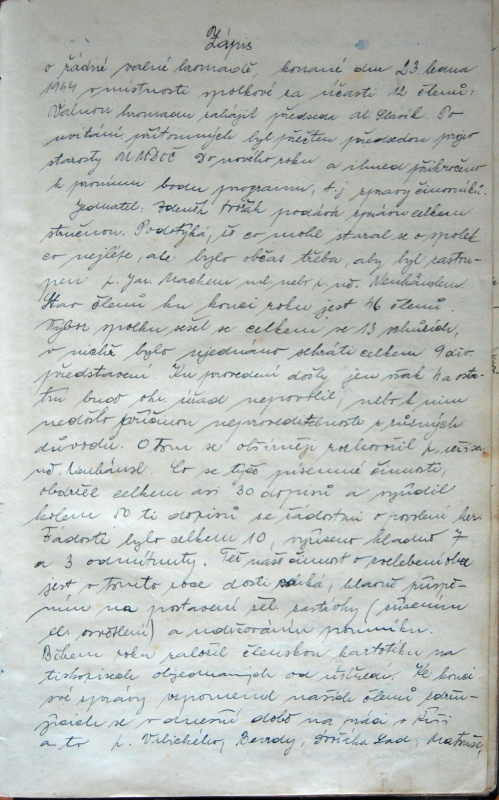 Zápis
o řádné valné hromadě, konané dne 23. ledna
1944 v místnosti spolkové za účasti 12 členů:
Valnou hromadu zahájil předseda al. Slavík Po
uvítání přítomných byl přečten předsedou projev
starosty ÚMDOČ Do nového roku a ihned přikročeno
k prvnímu bodu programu, t.j. zprávy činovníků.
Jednatel: Zdeněk Dvořák podává zprávu celkem
stručnou. Podotýká, že co mohl staral se o spolek
co nejlépe, ale bylo občas třeba, aby byl zastou-
pen p. Jar. Machem ml. nebo p. uč. Neuhäuslem.
Stav členů ku konci roku jest 46 členů.
Výbor spolku sešel se celkem ve 13 schůzích,
v nichž bylo ujednáno sehráti celkem 9 div.
představení. Ku provedení došly jen však 4 a osta-
tní buď okr. úřad nepovolil, nebo k nim
nedošlo příčinou neproveditelnosti z různých
důvodů. O tom se obšírněji rozhovořil p. režisér
uč Neuhäusl. Co se týče písemné činnosti,
obdržel celkem asi 30 dopisů a vyřídil
kolem 50 ti dopisů se žádostmi o povolení her.
Žádostí bylo celkem 10, vyřízeno kladně 7
a 3 odmítnuty. Též naše činnost o zvelebení obce
jest v tomto roce dosti veliká, hlavně přispě-
ním na postavení žel. zastávky (zřízením
el. osvětlení) a udržováním pomníku.
Během roku založil členskou kartotéku na
tiskopisech objednaných od ústředí. Ke konci
své zprávy vzpomenul našich členů zdržu-
jících se v dnešní době na práci v Říši
a to p. Vrbického, Bendy, Dvořáka Lad., Matouše,